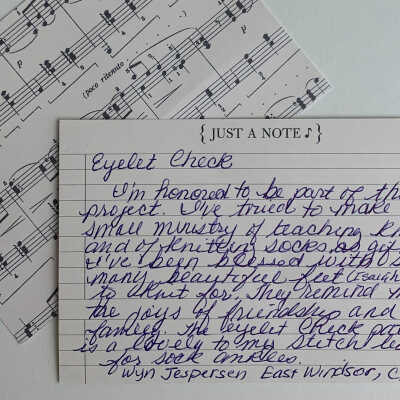 (poco ritenuto
p
p
{ JUST A NOTE ♪ }
Eyelet Check
I'm honored to be part of th
project. I've tried to make
small ministry of teaching kn
and of knitting socks as gif
I've been blessed with s
many beautiful feet (Isaiah
to knit for. They remind m
the joys of friendship and
family. The eyelet Check pa
is a lovely to my stitch
for sock ankles.
Wyn Jespersen East Windsor, C